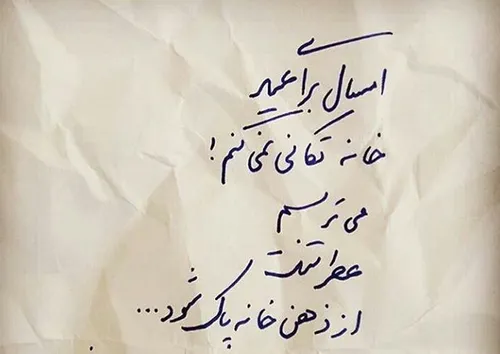 امسال برای عید
خانه تکانی نمی کنم!
می ترسم
عطر تنت
از ذهن خانه پاک شود...